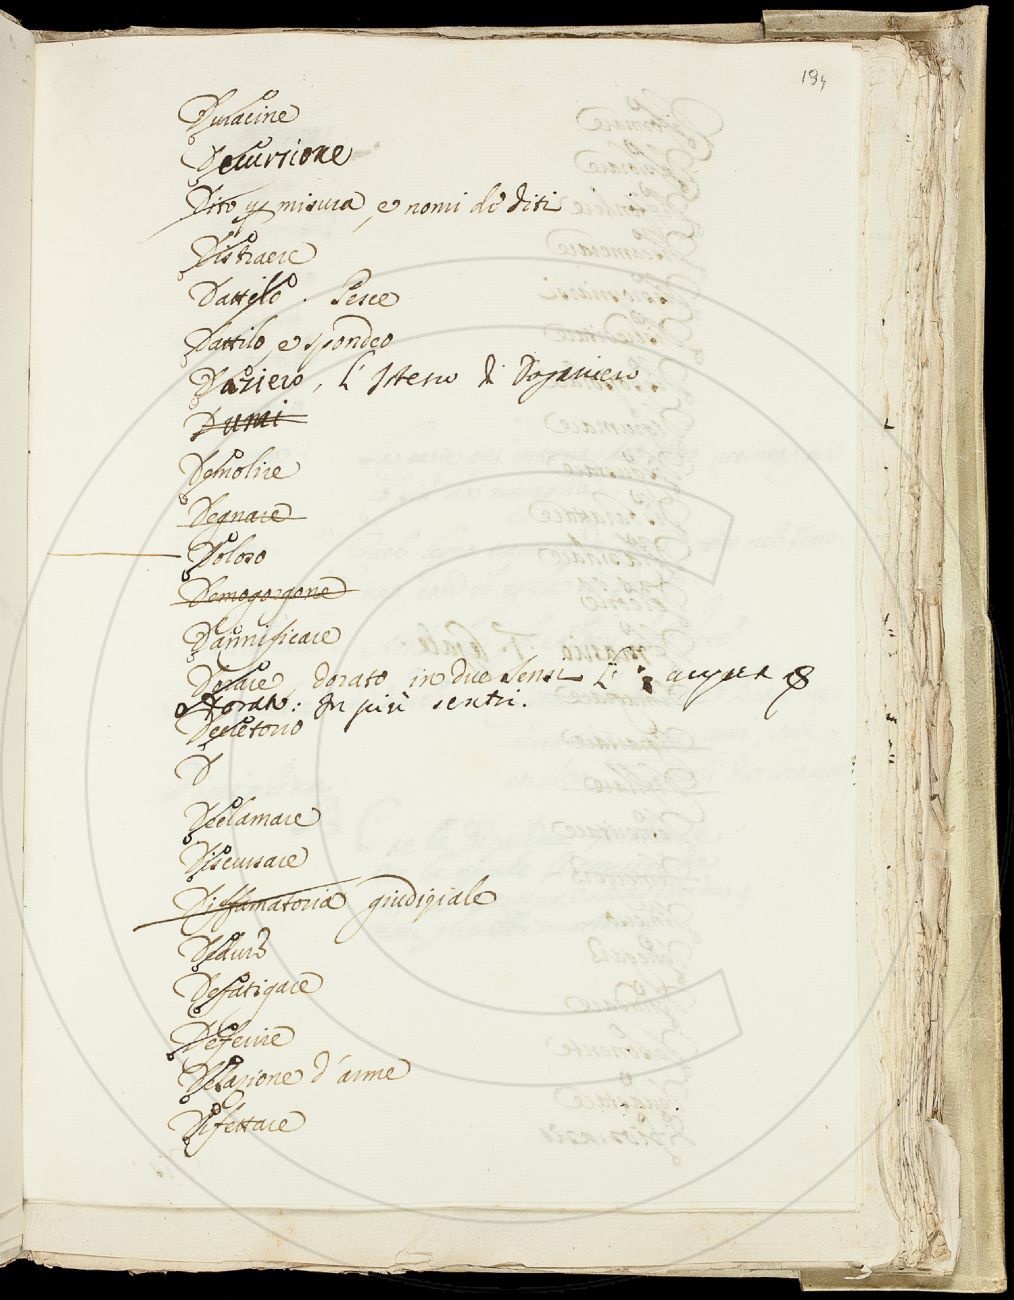 194
Duracine
Decursione
Dito p misura, e nomi de diti
Distraere
Dattilo. Pesce
Dattilo, e spondeo
Daziero, l'istesso di Doganiero
Dumi
Demolire
Degnare
Doloso
Demogorgone
Dannificare
Dorare, dorato in due sensi
Dorato: In più sentri.
Decretorio
D
Declamare
Discursare
Diffamatoria giudiziale
Defatigare
Deferire
Delazione d'arme
Difettare